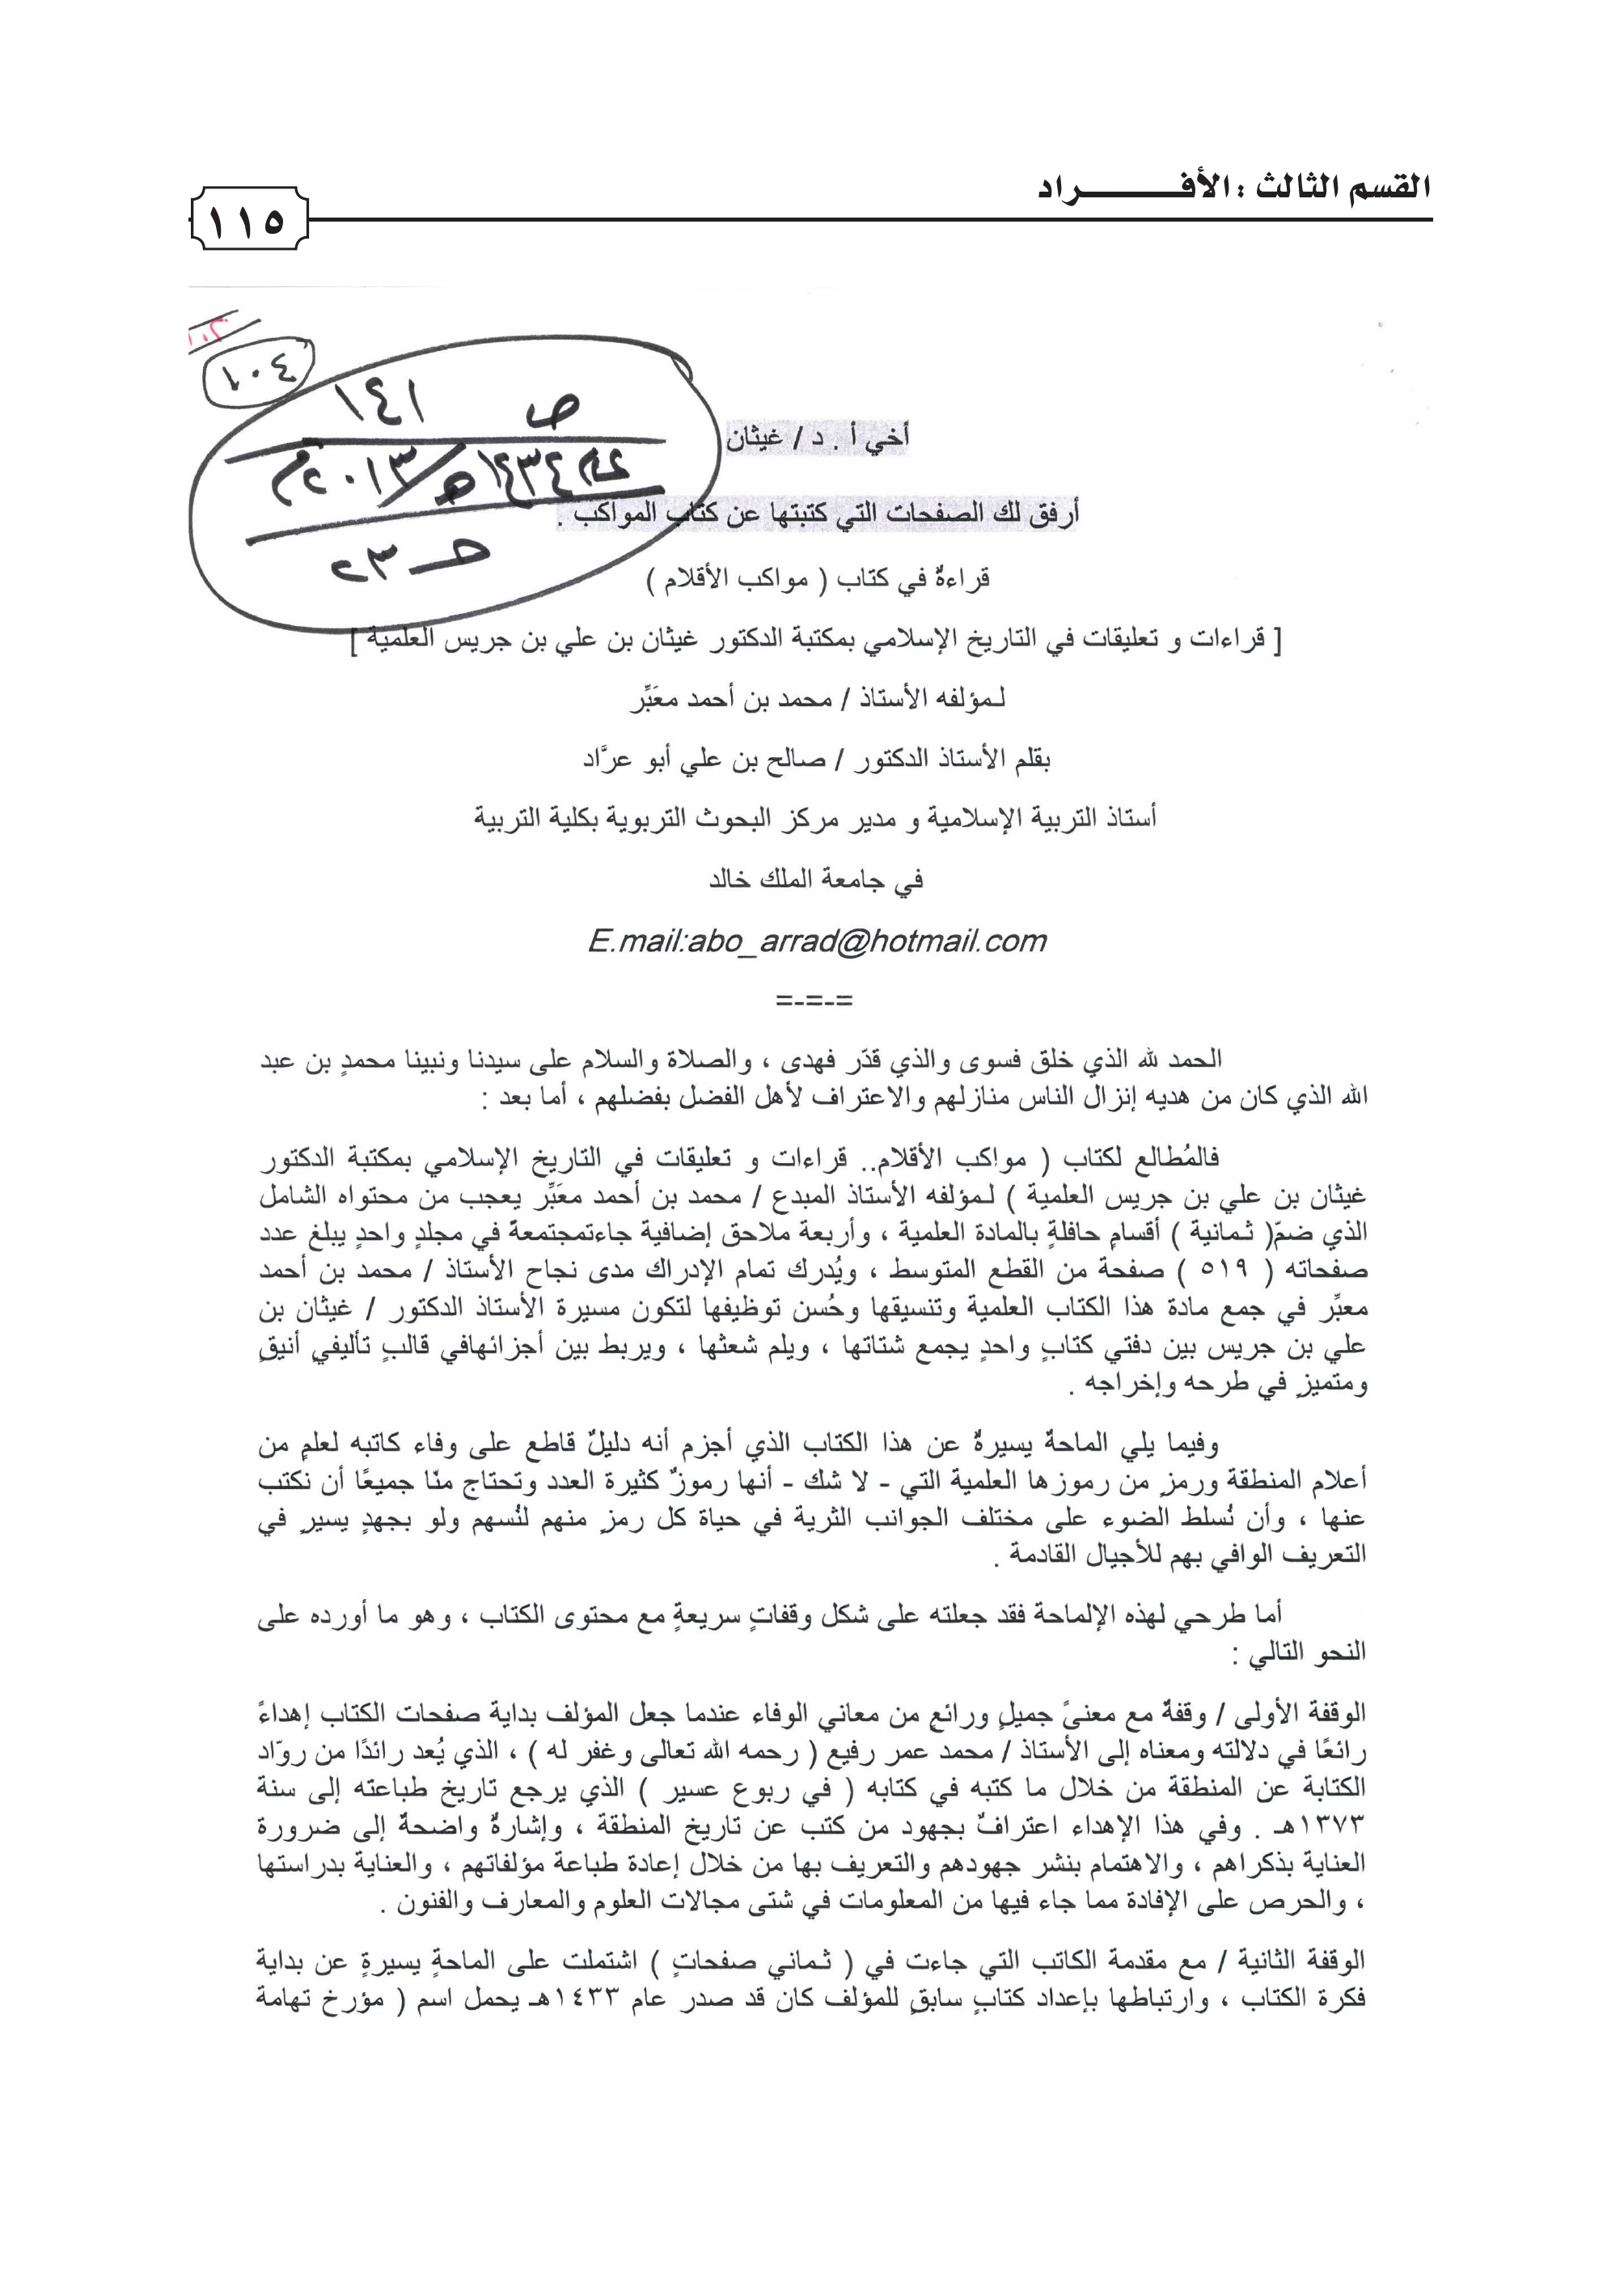 القسم الثالث : الأفـــــــــراد
١١٥
١٠٤
ص ١٤١
١٤٣٤هـ/٢٠١٣م
حـ ٢٣
أخي أ . د / غيثان
أرفق لك الصفحات التي كتبتها عن كتاب المواكب .
قراءةٌ في كتاب ( مواكب الأقلام )
[ قراءات و تعليقات في التاريخ الإسلامي بمكتبة الدكتور غيثان بن علي بن جريس العلمية ]
لـمؤلفه الأستاذ / محمد بن أحمد معَبِّر
بقلم الأستاذ الدكتور / صالح بن علي أبو عرَّاد
أستاذ التربية الإسلامية و مدير مركز البحوث التربوية بكلية التربية
في جامعة الملك خالد
E.mail:abo_arrad@hotmail.com
=-=-=
الحمد لله الذي خلق فسوى والذي قدّر فهدى ، والصلاة والسلام على سيدنا ونبينا محمدٍ بن عبد
الله الذي كان من هديه إنزال الناس منازلهم والاعتراف لأهل الفضل بفضلهم ، أما بعد :
فالمُطالع لكتاب ( مواكب الأقلام.. قراءات و تعليقات في التاريخ الإسلامي بمكتبة الدكتور
غيثان بن علي بن جريس العلمية ) لـمؤلفه الأستاذ المبدع / محمد بن أحمد معَبِّر يعجب من محتواه الشامل
الذي ضمّ( ثـمانية ) أقسامٍ حافلةٍ بالمادة العلمية ، وأربعة ملاحق إضافية جاءتمجتمعةً في مجلدٍ واحدٍ يبلغ عدد
صفحاته ( ٥١٩ ) صفحة من القطع المتوسط ، ويُدرك تمام الإدراك مدى نجاح الأستاذ / محمد بن أحمد
معبِّر في جمع مادة هذا الكتاب العلمية وتنسيقها وحُسن توظيفها لتكون مسيرة الأستاذ الدكتور / غيثان بن
علي بن جريس بين دفتي كتابٍ واحدٍ يجمع شتاتها ، ويلم شعثها ، ويربط بين أجزائهافي قالبٍ تأليفيٍ أنيقٍ
ومتميزٍ في طرحه وإخراجه .
وفيما يلي الماحةٌ يسيرةٌ عن هذا الكتاب الذي أجزم أنه دليلٌ قاطع على وفاء كاتبه لعلمٍ من
أعلام المنطقة ورمزٍ من رموزها العلمية التي - لا شك - أنها رموزٌ كثيرة العدد وتحتاج منّا جميعًا أن نكتب
عنها ، وأن نُسلط الضوء على مختلف الجوانب الثرية في حياة كل رمزٍ منهم لنُسهم ولو بجهدٍ يسيرٍ في
التعريف الوافي بهم للأجيال القادمة .
أما طرحي لهذه الإلماحة فقد جعلته على شكل وقفاتٍ سريعةٍ مع محتوى الكتاب ، وهو ما أورده على
النحو التالي :
الوقفة الأولى / وقفةٌ مع معنىً جميلٍ ورائعٍ من معاني الوفاء عندما جعل المؤلف بداية صفحات الكتاب إهداءً
رائعًا في دلالته ومعناه إلى الأستاذ / محمد عمر رفيع ( رحمه الله تعالى وغفر له ) ، الذي يُعد رائدًا من روّاد
الكتابة عن المنطقة من خلال ما كتبه في كتابه ( في ربوع عسير ) الذي يرجع تاريخ طباعته إلى سنة
١٣٧٣هـ . وفي هذا الإهداء اعترافٌ بجهود من كتب عن تاريخ المنطقة ، وإشارةٌ واضحةٌ إلى ضرورة
العناية بذكراهم ، والاهتمام بنشر جهودهم والتعريف بها من خلال إعادة طباعة مؤلفاتهم ، والعناية بدراستها
، والحرص على الإفادة مما جاء فيها من المعلومات في شتى مجالات العلوم والمعارف والفنون .
الوقفة الثانية / مع مقدمة الكاتب التي جاءت في ( ثـماني صفحاتٍ ) اشتملت على الماحةٍ يسيرةٍ عن بداية
فكرة الكتاب ، وارتباطها بإعداد كتابٍ سابقٍ للمؤلف كان قد صدر عام ١٤٣٣هـ يحمل اسم ( مؤرخ تهامة